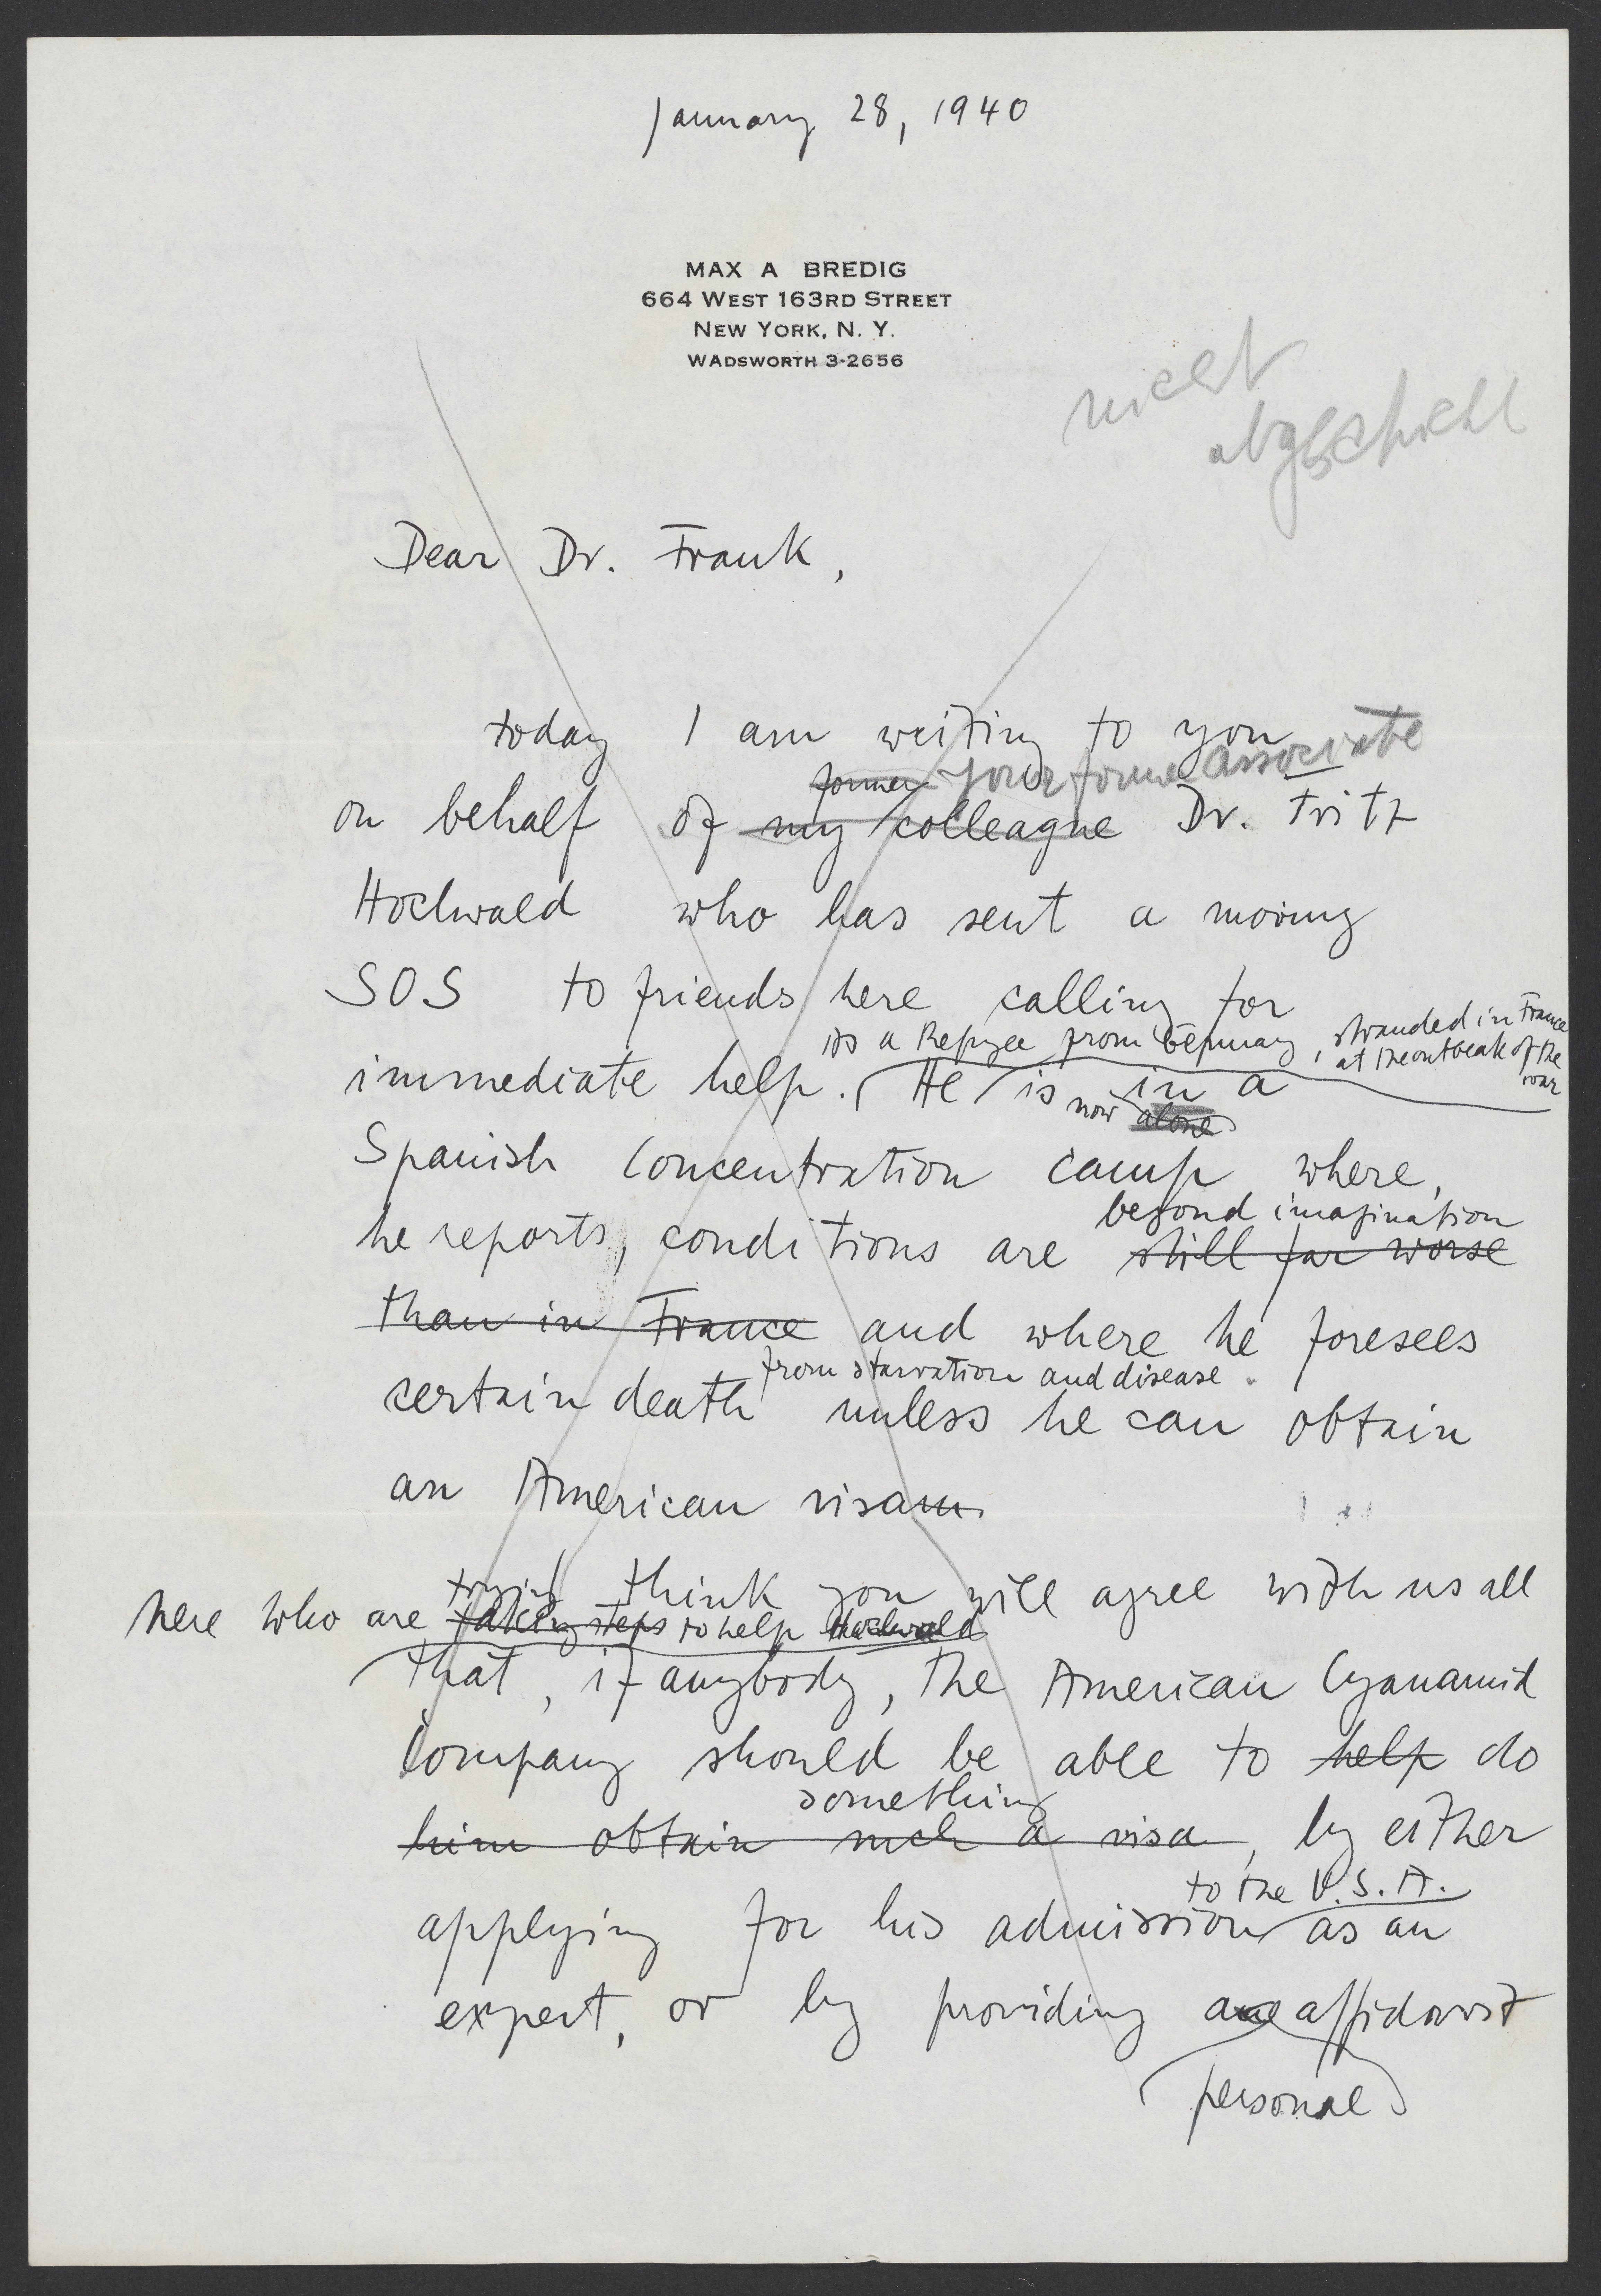 January 28, 1940
MAX A BREDIG
664 WEST 163RD STREET
NEW YORK, N. Y.
WADSWORTH 3-2656
nicht
abgeschickt
Dear Dr. Frank,
today I am writing to you
former your former associate
on behalf of my colleague Dr. Fritz
Hochwald who has sent a moving
SOS to friends here calling for
as a Refugee from Germany, stranded in France
at the outbreak of the
war
immediate help. He is in a
now alone
Spanish Concentration camp where,
beyond imagination
he reports, conditions are still far worse
than in France and where he foresees
from starvation and disease.
certain death unless he can obtain
an American visum.
I think you will agree with us all
trying
here who are taking steps to help Hochwald
that, if anybody, the American Cyanamid
Company should be able to help do
something
him obtain such a visa, by either
to the U.S.A.
applying for his admission as an
expert, or by providing affidavit
personal